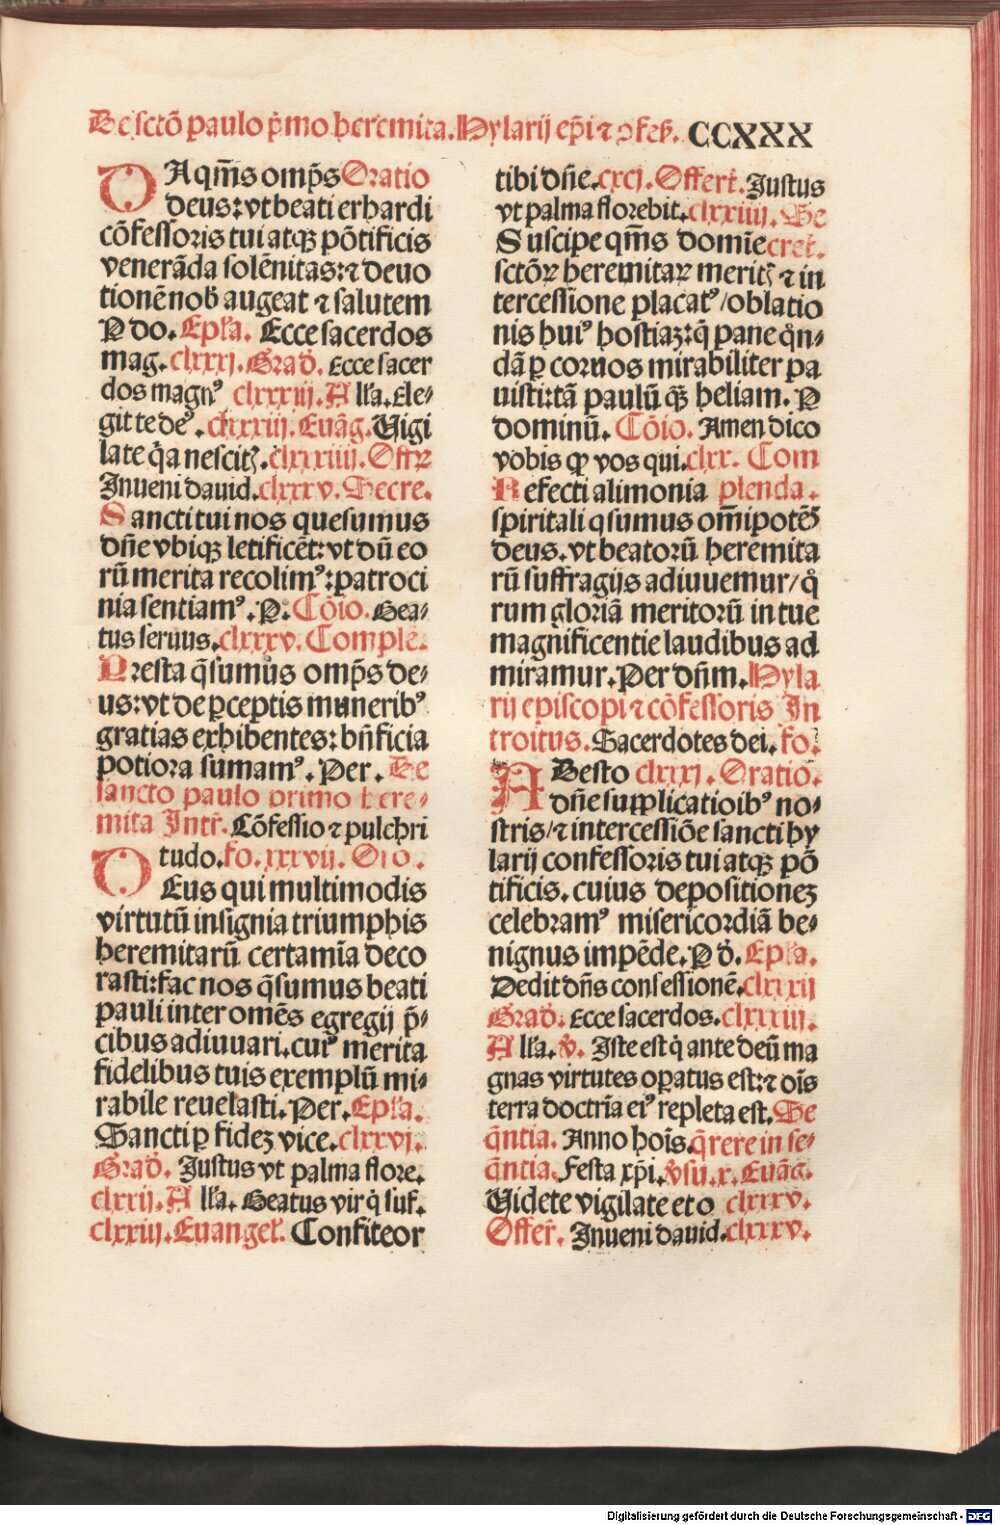 De sctō paulo p̄mo heremita. Hylarij ep̄i ⁊ ↄfeſſ. CCXXX
DA qm̄s omp̄s Oratio
deus: vt beati erhardi
cōfeſſoris tui atqꝫ pōtificis
venerāda ſolēnitas: ⁊ deuo
tionē nob̄ augeat ⁊ ſalutem
P do. Epl̄a. Ecce ſacerdos
mag. clxxxi. Grad̄. Ecce ſacer
dos magnꝰ clxxxiii. Alla. Ele⸗
git te deꝰ. clxxxiii. Euāg. Uigi
late q̄a neſcitꝭ. clxxxiiii. Offꝝ
Inueni dauid. clxxxv. Secre.
Sancti tui nos queſumus
dn̄e vbiqꝫ letificēt: vt dū eo
rū merita recolimꝰ: patroci
nia ſentiamꝰ. P. Cōio. Bea⸗
tus ſeruus. clxxxv. Complē.
Preſta q̄ſumus omp̄s de⸗
us: vt de ꝑceptis muneribꝰ
gratias exhibentes: bn̄ficia
potiora ſumamꝰ. Per. De
ſancto paulo primo here⸗
mita Intr̄. Cōfeſſio ⁊ pulchri
tudo. fo. xxxvii. Oro.
DEus qui multimodis
virtutū inſignia triumphis
heremitarū certamīa deco
raſti: fac nos q̄ſumus beati
pauli inter omēs egregij p̄⸗
cibus adiuuari. cuiꝰ merita
fidelibus tuis exemplū mi⸗
rabile reuelaſti. Per. Epl̄a.
Sancti ꝑ fideꝫ vice. clxxvi.
Grad̄. Juſtus vt palma flore.
clxxij. Alla. Beatus vir q̄ ſuf.
clxxiij. Euangel̄. Confiteor
tibi dn̄e. cxcj. Offert̄. Juſtus
vt palma florebit. clxxiiij. Se
Suſcipe qm̄s domīe cret̄.
ſctōꝝ heremitaꝝ meritꝭ ⁊ in
terceſſione placatꝰ/ oblatio
nis huiꝰ hoſtiaꝫ: q̄ pane qͦn⸗
dā ꝑ coruos mirabiliter pa
uiſti: tā paulū qꝫ heliam. P
dominū. Cōio. Amen dico
vobis qꝙ vos qui. clxx. Com
Refecti alimonia plenda.
ſpiritali qſumus om̄ipotēs
deus. vt beatorū heremita
rū ſuffragijs adiuuemur/ qͦ
rum gloriā meritorū in tue
magnificentie laudibus ad
miramur. Per dn̄m. Hyla
rij epiſcopi ⁊ cōfeſſoris In
troitus. Sacerdotes dei. fo.
ABeſto clxxxj. Oratio.
dn̄e ſupplicatioībꝰ no⸗
ſtris/ ⁊ interceſſiōe ſancti hy
larij confeſſoris tui atqꝫ pō
tificis. cuius depoſitioneꝫ
celebramꝰ miſericordiā be⸗
nignus impēde. P d̄. Epl̄a.
Dedit dn̄s confeſſionē. clxxxij
Grad̄. Ecce ſacerdos. clxxxiii.
Alla. v̄. Iſte eſt q̄ ante deū ma
gnas virtutes oꝑatus eſt: ⁊ oīs
terra doctrīa eiꝰ repleta eſt. Se
q̄ntia. Anno hoīs. q̄rere in ſe⸗
q̄ntia. Feſta xp̄i. v̄ſu. x. Euāg.
Uidete vigilate et o clxxxv.
Offer̄. Inueni dauid. clxxxv.
Digitalisierung gefördert durch die Deutsche Forschungsgemeinschaft - DFG